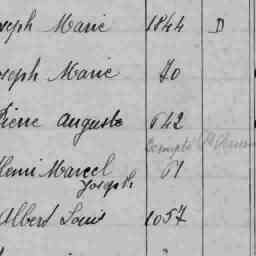 seph Marie 1844 D
oseph Marie 70
Pierre Auguste 642
Henri Marcel 61
Joseph
Albert Louis 1057